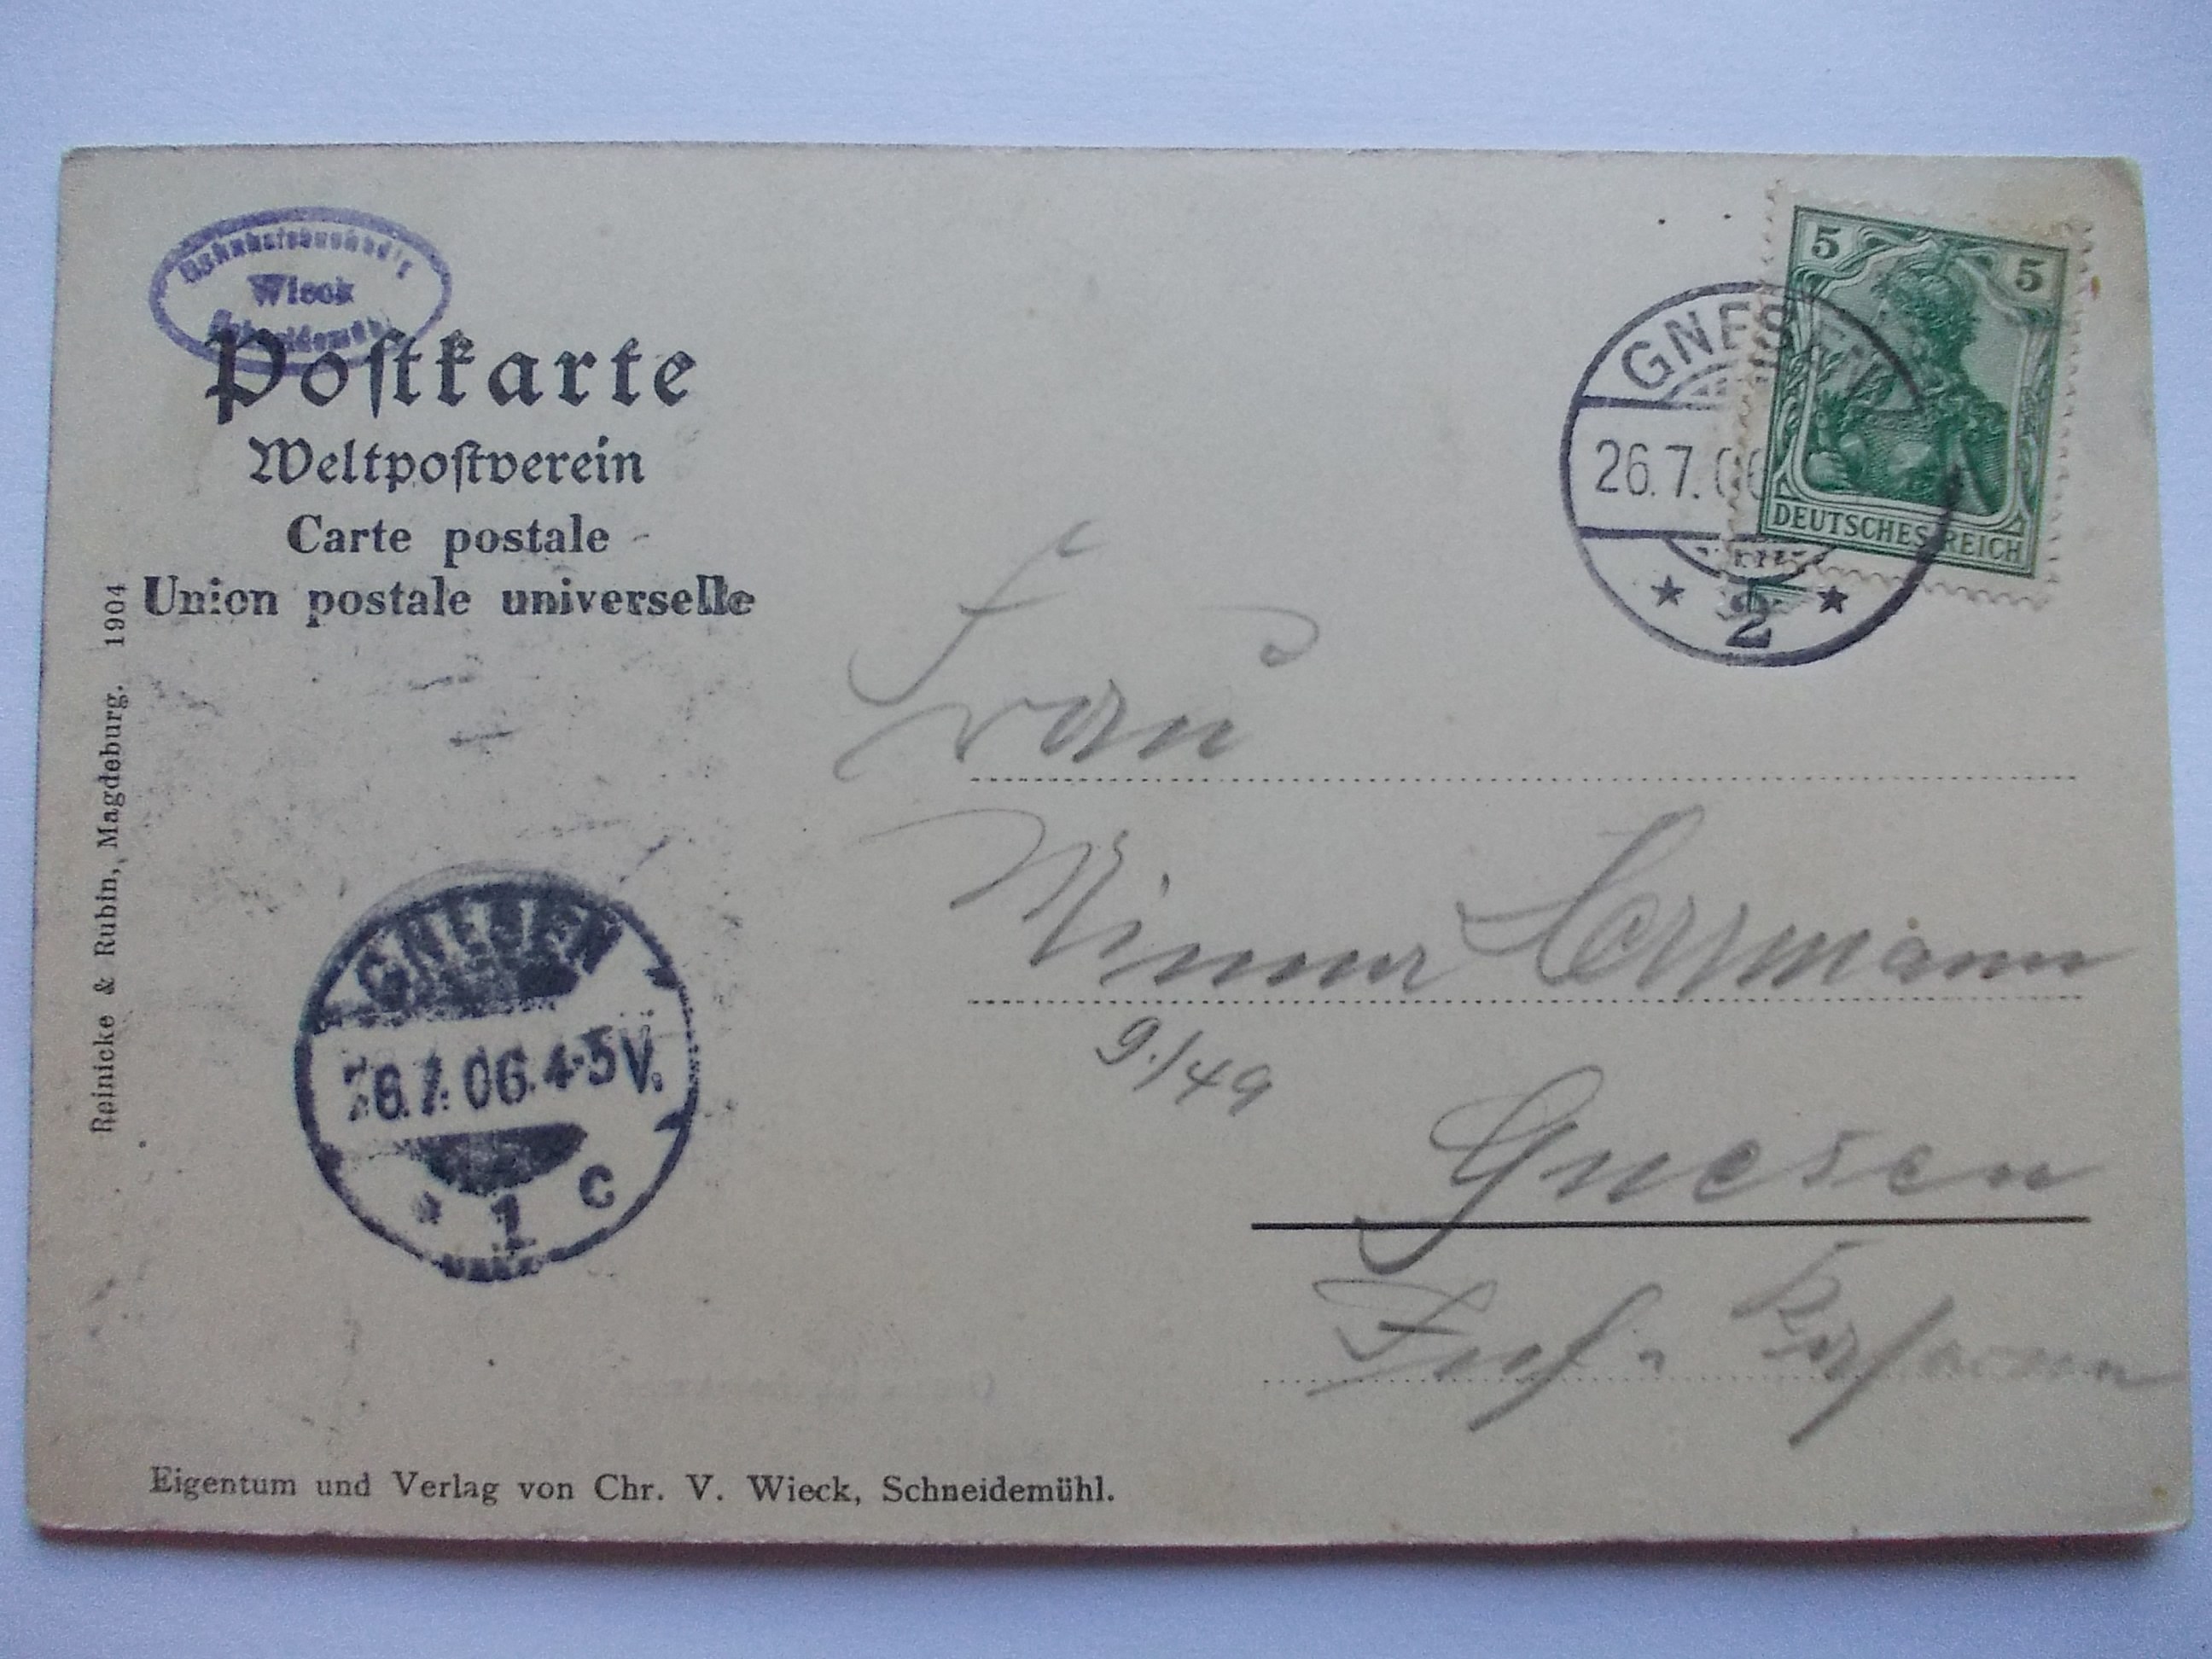 Wieck
Postkarte
Weltpostverein
Carte postale
Union postale universelle
Reinicke & Rubin, Magdeburg. 1904
5 5
DEUTSCHES REICH
GNESEN
26.7.06
2
Frau
Minna
9./49
Gnesen
GNESEN
06.4-5V.
1 c
Eigentum und Verlag von Chr. V. Wieck, Schneidemühl.